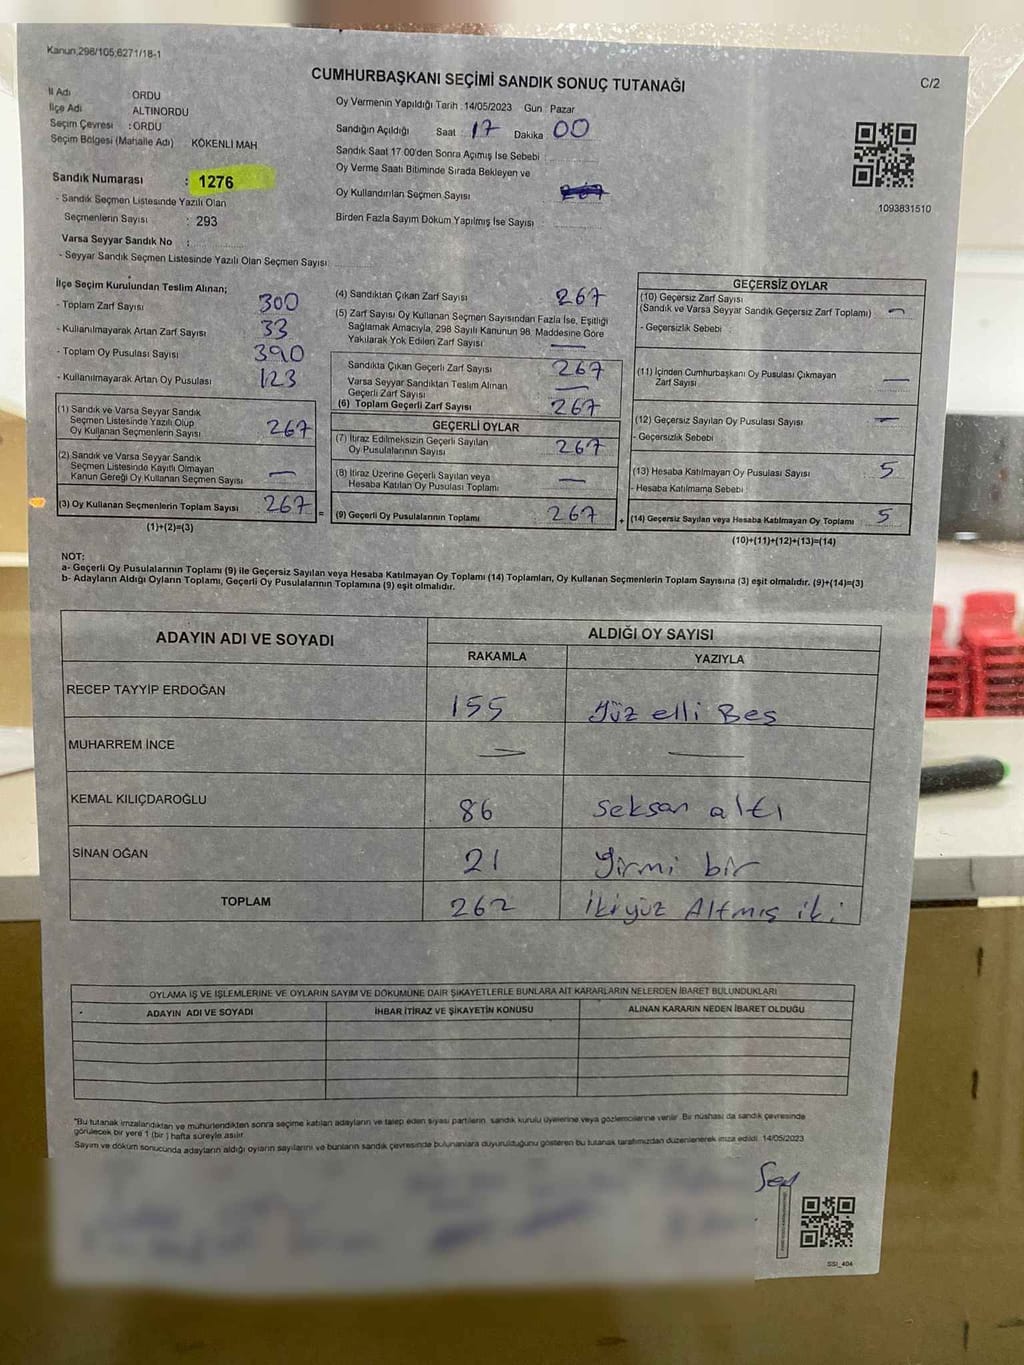 Kanun,298/105,6271/18-1
C/2
CUMHURBAŞKANI SEÇİMİ SANDIK SONUÇ TUTANAĞI
İl Adı ORDU
İlçe Adı ALTINORDU
Seçim Çevresi : ORDU
Seçim Bölgesi (Mahalle Adı) KÖKENLİ MAH
Sandık Numarası : 1276
- Sandık Seçmen Listesinde Yazılı Olan
Seçmenlerin Sayısı : 293
Varsa Seyyar Sandık No :
- Seyyar Sandık Seçmen Listesinde Yazılı Olan Seçmen Sayısı
Oy Vermenin Yapıldığı Tarih : 14/05/2023 Gün : Pazar
Sandığın Açıldığı Saat : 17 Dakika 00
Sandık Saat 17.00'den Sonra Açımış İse Sebebi
Oy Verme Saati Bitiminde Sırada Bekleyen ve
Oy Kullandırılan Seçmen Sayısı
Birden Fazla Sayım Döküm Yapılmış İse Sayısı
1093831510
İlçe Seçim Kurulundan Teslim Alınan;
- Toplam Zarf Sayısı 300
- Kullanılmayarak Artan Zarf Sayısı 33
- Toplam Oy Pusulası Sayısı 390
- Kullanılmayarak Artan Oy Pusulası 123
(1) Sandık ve Varsa Seyyar Sandık
Seçmen Listesinde Yazılı Olup
Oy Kullanan Seçmenlerin Sayısı 267
(2) Sandık ve Varsa Seyyar Sandık
Seçmen Listesinde Kayıtlı Olmayan
Kanun Gereği Oy Kullanan Seçmen Sayısı —
(3) Oy Kullanan Seçmenlerin Toplam Sayısı 267 =
(1)+(2)=(3)
(4) Sandıktan Çıkan Zarf Sayısı 267
(5) Zarf Sayısı Oy Kullanan Seçmen Sayısından Fazla İse, Eşitliği
Sağlamak Amacıyla, 298 Sayılı Kanunun 98. Maddesine Göre
Yakılarak Yok Edilen Zarf Sayısı —
Sandıkta Çıkan Geçerli Zarf Sayısı 267
Varsa Seyyar Sandıktan Teslim Alınan
Geçerli Zarf Sayısı —
(6) Toplam Geçerli Zarf Sayısı 267
GEÇERLİ OYLAR
(7) İtiraz Edilmeksizin Geçerli Sayılan
Oy Pusulalarının Sayısı 267
(8) İtiraz Üzerine Geçerli Sayılan veya
Hesaba Katılan Oy Pusulası Toplamı —
(9) Geçerli Oy Pusulalarının Toplamı 267 +
GEÇERSİZ OYLAR
(10) Geçersiz Zarf Sayısı
(Sandık ve Varsa Seyyar Sandık Geçersiz Zarf Toplamı) —
- Geçersizlik Sebebi :
(11) İçinden Cumhurbaşkanı Oy Pusulası Çıkmayan
Zarf Sayısı —
(12) Geçersiz Sayılan Oy Pusulası Sayısı —
- Geçersizlik Sebebi
(13) Hesaba Katılmayan Oy Pusulası Sayısı 5
- Hesaba Katılmama Sebebi
(14) Geçersiz Sayılan veya Hesaba Katılmayan Oy Toplamı 5
(10)+(11)+(12)+(13)=(14)
NOT:
a- Geçerli Oy Pusulalarının Toplamı (9) ile Geçersiz Sayılan veya Hesaba Katılmayan Oy Toplamı (14) Toplamları, Oy Kullanan Seçmenlerin Toplam Sayısına (3) eşit olmalıdır. (9)+(14)=(3)
b- Adayların Aldığı Oyların Toplamı, Geçerli Oy Pusulalarının Toplamına (9) eşit olmalıdır.
ADAYIN ADI VE SOYADI ALDIĞI OY SAYISI
RAKAMLA YAZIYLA
RECEP TAYYİP ERDOĞAN 155 Yüz elli Beş
MUHARREM İNCE — —
KEMAL KILIÇDAROĞLU 86 Seksan altı
SİNAN OĞAN 21 Yirmi bir
TOPLAM 262 İkiyüz Altmış iki
OYLAMA İŞ VE İŞLEMLERİNE VE OYLARIN SAYIM VE DÖKÜMÜNE DAİR ŞİKAYETLERLE BUNLARA AİT KARARLARIN NELERDEN İBARET BULUNDUKLARI
ADAYIN ADI VE SOYADI İHBAR İTİRAZ VE ŞİKAYETİN KONUSU ALINAN KARARIN NEDEN İBARET OLDUĞU
*Bu tutanak imzalandıktan ve mühürlendikten sonra seçime katılan adayların ve talep eden siyasi partilerin sandık kurulu üyelerine veya gözlemcilerine verilir. Bir nüshası da sandık çevresinde
görülecek bir yere 1 (bir) hafta süreyle asılır.
Sayım ve döküm sonucunda adayların aldığı oyların sayılarını ve bunların sandık çevresinde bulunanlara duyurulduğunu gösteren bu tutanak tarafımızdan düzenlenerek imza edildi. 14/05/2023
SSI_404